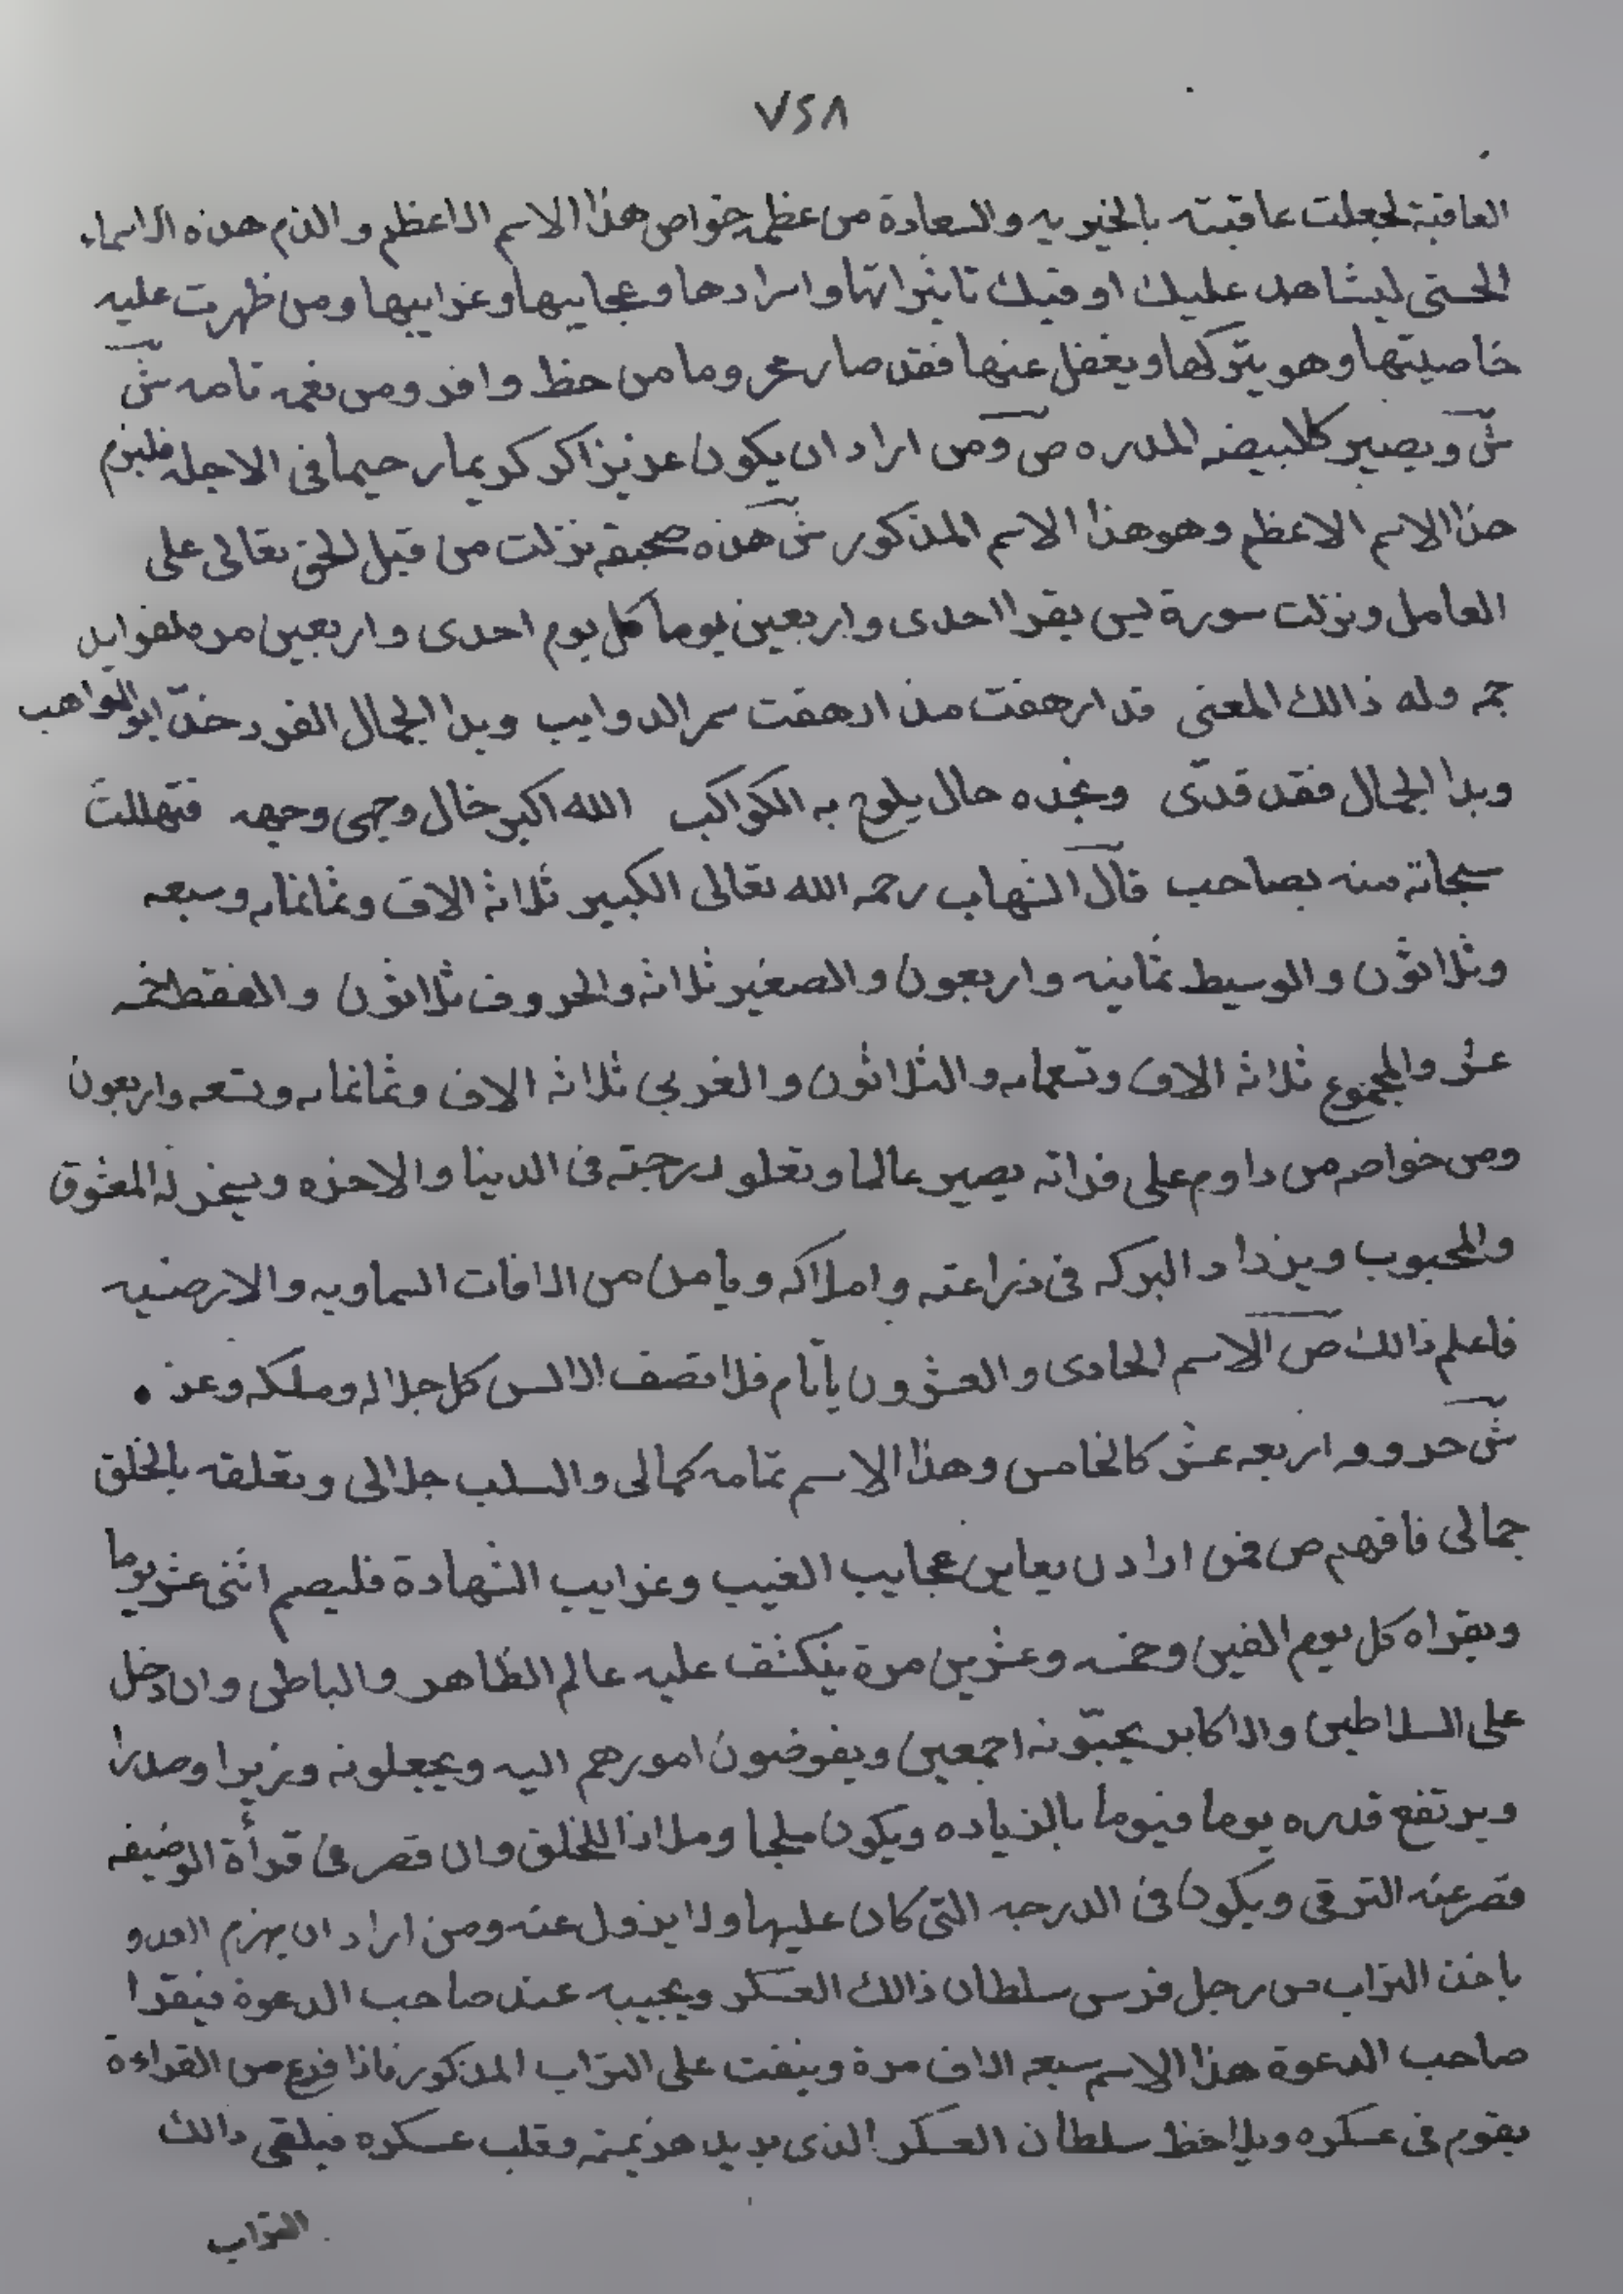 ٧٢٨
العاقبة لجعلت عاقبته بالخيريه والسعادة من عظمه خواص هذا الاسم الاعظم والذم هذه الاسماء
الحسنى ليشاهد عليك او فيك تاثيراتها واسرارها وعجايبها وغرايبها ومن ظهرت عليه
خاصيتها وهو يتركها ويغفل عنها فقد صار محروما من حظ وافر ومن نعمه تامه ش
ش ويصير كالبيضه المدره ص ومن اراد ان يكون عزيزا كر كريما رحيما فى الاجله فليزم
هذا الاسم الاعظم وهو هذا الاسم المذكور ش هذه صحيفه نزلت من قبل الحق تعالى على
العامل ونزلت سورة يس يقرا احدى واربعين يوما كل يوم احدى واربعين مره فوايد
جمه وله ذالك المعنى قد ارهفت مذ ارهفت سمر الدوايب وبدا الجمال الفرد خدّ ابو المواهب
وبدا الجمال فقد قدّى وبخده حال يلوح به الكواكب الله اكبر خال وجهى وجهه فتهللت
سبحاته منه بصاحب قال الشهاب رحمه الله تعالى الكبير ثلاثة الاف وثمانمايه وسبعه
وثلاثون والوسيط ثمانيه واربعون والصغير ثلاثه والحروف ثلاثون والنقط خمسه
عشر والمجموع ثلاثة الاف وتسعمايه والثلاثون والغربي ثلاثة الاف وثمانمايه وتسعه واربعون
ومن خواصه من داوم على قراته يصير عالما وتعلو درجته فى الدينا والاخره ويسخر له المعشوق
والمحبوب ويزداد البركه فى ذراعته واملاكه ويامن من الافات السماويه والارضيه
فاعلم ذالك ص الاسم الحادى والعشرون ياتام فلا تصف الالسن كل جلاله وملكه وعز .
ش حروفه اربعه عشر كالخامس وهذا الاسم تمامه كمالى والسلب جلالى وتعلقه بالخلق
جمالى فافهم ص فمن اراد ن يعاين عجايب الغيب وغرايب الشهادة فليصم اثنى عشر يوما
ويقراه كل يوم الفين وخمسه وعشرين مرة ينكشف عليه عالم الظاهر والباطن وان دخل
على السلاطين والاكابر يحبّونه اجمعين ويفوضون امورهم اليه ويجعلونه وزيرا وصدرا
ويرتفع قدره يوما فيوما بالزياده ويكون ملجا وملاذا للخلق وان قصر فى قرأة الوضيفه
قصر عنه الترقى ويكون فى الدرجه التى كان عليها ولا يزول عنه ومن اراد ان يهزم العدو
ياخذ التراب من رجل فرس سلطان ذالك العسكر ويجيبه عند صاحب الدعوة فيقرا
صاحب الدعوة هذا الاسم سبعه الاف مرة وينفت على التراب المذكور فاذا فرغ من القراءة
يقوم فى عسكره ويلاحظ سلطان العسكر الذى يريد هزيمته وقلب عسكره فيلقى ذالك
التراب